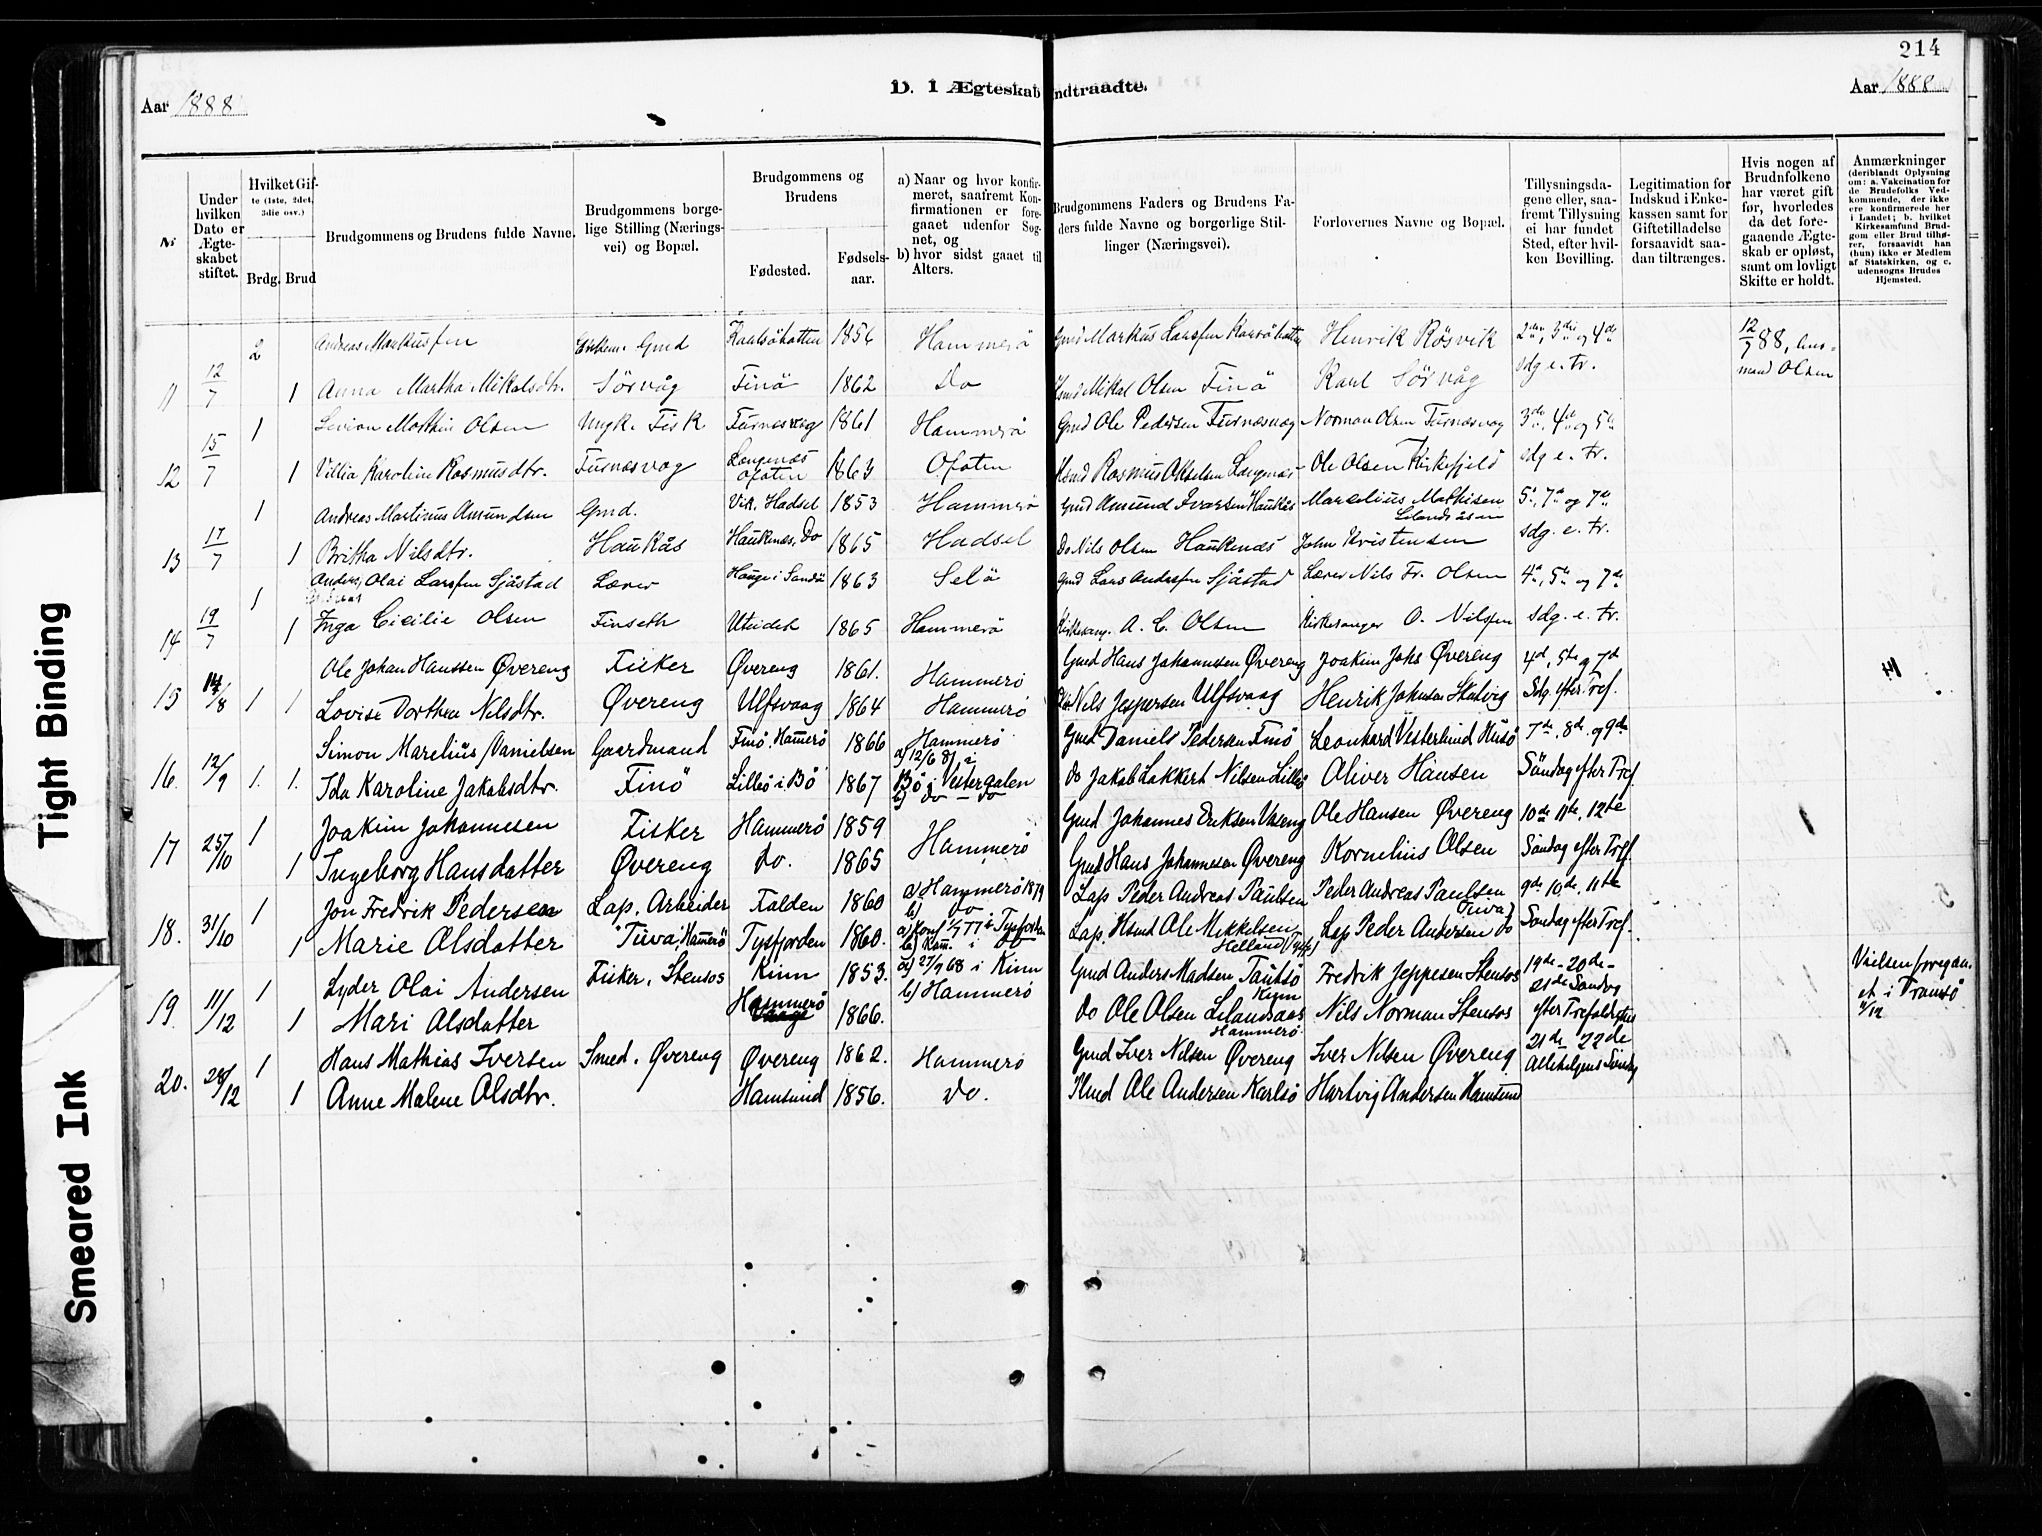 214
D. 1 Ægteskab Indtraadte.
Aar 1888
Aar 1888
Tight Binding
Smeared Ink
No
Under hvilken Dato er Ægteskabet stiftet.
Hvilket Gifte (1ste, 2det, 3die osv.)
Brdg.
Brud
Brudgommens og Brudens fulde Navne.
Brudgommens borgelige Stilling (Næringsvei) og Bopæl.
Brudgommens og Brudens
Fødested.
Fødselsaar.
a) Naar og hvor konfirmeret, saafremt Konfirmationen er foregaaet udenfor Sognet, og
b) hvor sidst gaaet til Alters.
Brudgommens Faders og Brudens Faders fulde Navne og borgerlige Stillinger (Næringsvei).
Forlovernes Navne og Bopæl.
Tillysningsdagene eller, saafremt Tillysning ei har fundet Sted, efter hvilken Bevilling.
Legitimation for Indskud i Enkekassen samt for Giftetilladelse forsaavidt saadan tiltrænges.
Hvis nogen af Brudnfolkene har været gift før, hvorledes da det foregaaende Ægteskab er opløst, samt om lovligt Skifte er holdt.
Anmærkninger (deriblandt Oplysning om: a. Vakcination for de Brudefolks Vedkommende, der ikke ere konfirmerede her i Landet; b. hvilket Kirkesamfund Brudgom eller Brud tilhører, forsaavidt han (hun) ikke er Medlem af Statskirken, og c. udensogns Brudes Hjemsted.
2 Andreas Markussen Enkem. Gmd Kaalsöhatten 1854 Hammerö Gmd Markus Larssen Henrik Rösvik 2den, 3die og 4de 12/7 88,
11 12/7 1 Anna Martha Mikalsdtr. Sörvåg Finö 1862 Do Hsmd Mikal Olsen Finö Karl Sörvåg sdg e. tr. Olsen
1 Olsen Ungk. Fisk Furnæsvåg 1861 Hammerö Gmd Ole Pedersen Furnæsvåg Norman Olsen Furnæsvåg 3die, 4de og 5te
12 15/7 1 Villia Karolin Rasmusdtr. Furnæsvåg Langenæs Ofoten 1863 Ofoten Hsmd Rasmus Langenæs Ole Olsen Kirkefjeld sdg e. tr.
1 Andreas Martinus Amundsen Gmd. Vik, Hadsel 1853 Hammerö Gmd Amund Ivarsen Haukås Marselius Mathisen Lilandsåsen 5te, og 7de
13 17/7 1 Britha Nilsdtr. Haukås Haukenæs, Do 1865 Hadsel Do Nils Olsen Haukenæs John Kristensen sdg. e. tr.
1 Anders Olai Larssen Sjåstad Lærer Hauge i 1863 Selö Gmd Lars Anderssen Sjåstad Lærer Nils Fr. Olsen 4de, 5te og 7de
14 19/7 1 Inga Cicilie Olsen Finseth Uteidet 1865 Hammerö Kirkesang. A. C. Olsen Kirkesanger O. Nilssen sdg. e. tr.
Ole Johan Hanssen Øvereng Fisker Øvereng 1861. Hammerö Gmd Hans Johannessen Øvereng Joakim Johs Øvereng 4d, 5te og 7d
15 14/8 1 1 Lovise Dorthea Nilsdtr. Øvereng Ulfsvaag 1864 Hammerö Nils Jespersen Ulfsvaag Henrik Johnsen Skutvig Sdg. efter Tref.
Simon Marelius Danielsen Gaardmand Finö, Hammerö 1866 Hammerö Gmd Daniels Pedersen Finö Leonhard Vesterlund Husö 7de, 8de, og 9de
16. 12/9 1. 1. Ida Karoline Jakobsdtr. Finö Lilleö i Bö 1867 a) 12/6 81 i Bö i Vesteraalen b) do – do Do Jakob Lakkert Nilsen Lilleö Oliver Hansen Söndag efter Tref.
1 Joakim Johannesen Fisker Hammerö 1859 Hammerö Gmd Johannes Eriksen Øvereng Ole Hansen Øvereng 10de 11te, 12te
17 25/10 1 Ingeborg Hansdatter Øvereng do. 1865 Gmd Hans Johannesen Øvereng Kornelius Olsen Söndag efter Tref.
1 Jon Fredrik Pedersen Lap. Arbeider Falden 1860 a) Hammerö 1879 b) do Lap Peder Andreas Paulsen Peder Andreas Paulsen Tuva 9de 10de, 11te
18. 31/10 1 Marie Olsdatter Tuva, Hammerö Tysfjorden 1860. a) Konf 1/7 77 i Tysfjorden Lap. Hsmd Ole Mikkelsen Helland (Tysfj) Lap Peder Andersen do Söndag efter Tref.
1 Lyder Olai Andersen Fisker, Stensos Kinn 1853. a) 27/9 68 i Kinn b) Hammerö Gmd Anders Madsen Tautsö Kinn Fredrik Jeppesen Stensos 19de – 20de – 21de Söndag Vielsen foregaaet i Tranöy 11/12
19. 11/12 1 Mari Olsdatter Hammerö 1866. do Ole Olsen Lilandsaas Hammerö Nils Norman Stensos efter Trefoldighed
1 Hans Mathias Iversen Smed. Øvereng Øvereng 1862. Hammerö Gmd Iver Nilsen Øvereng Iver Nilsen Øvereng 21de 22de
20. 28/12 1 Anne Malene Olsdtr. Hamsund 1856. do. Hmd Ole Andersen Karlsö Hartvig Andersen Hamsund Allehelgens Söndag